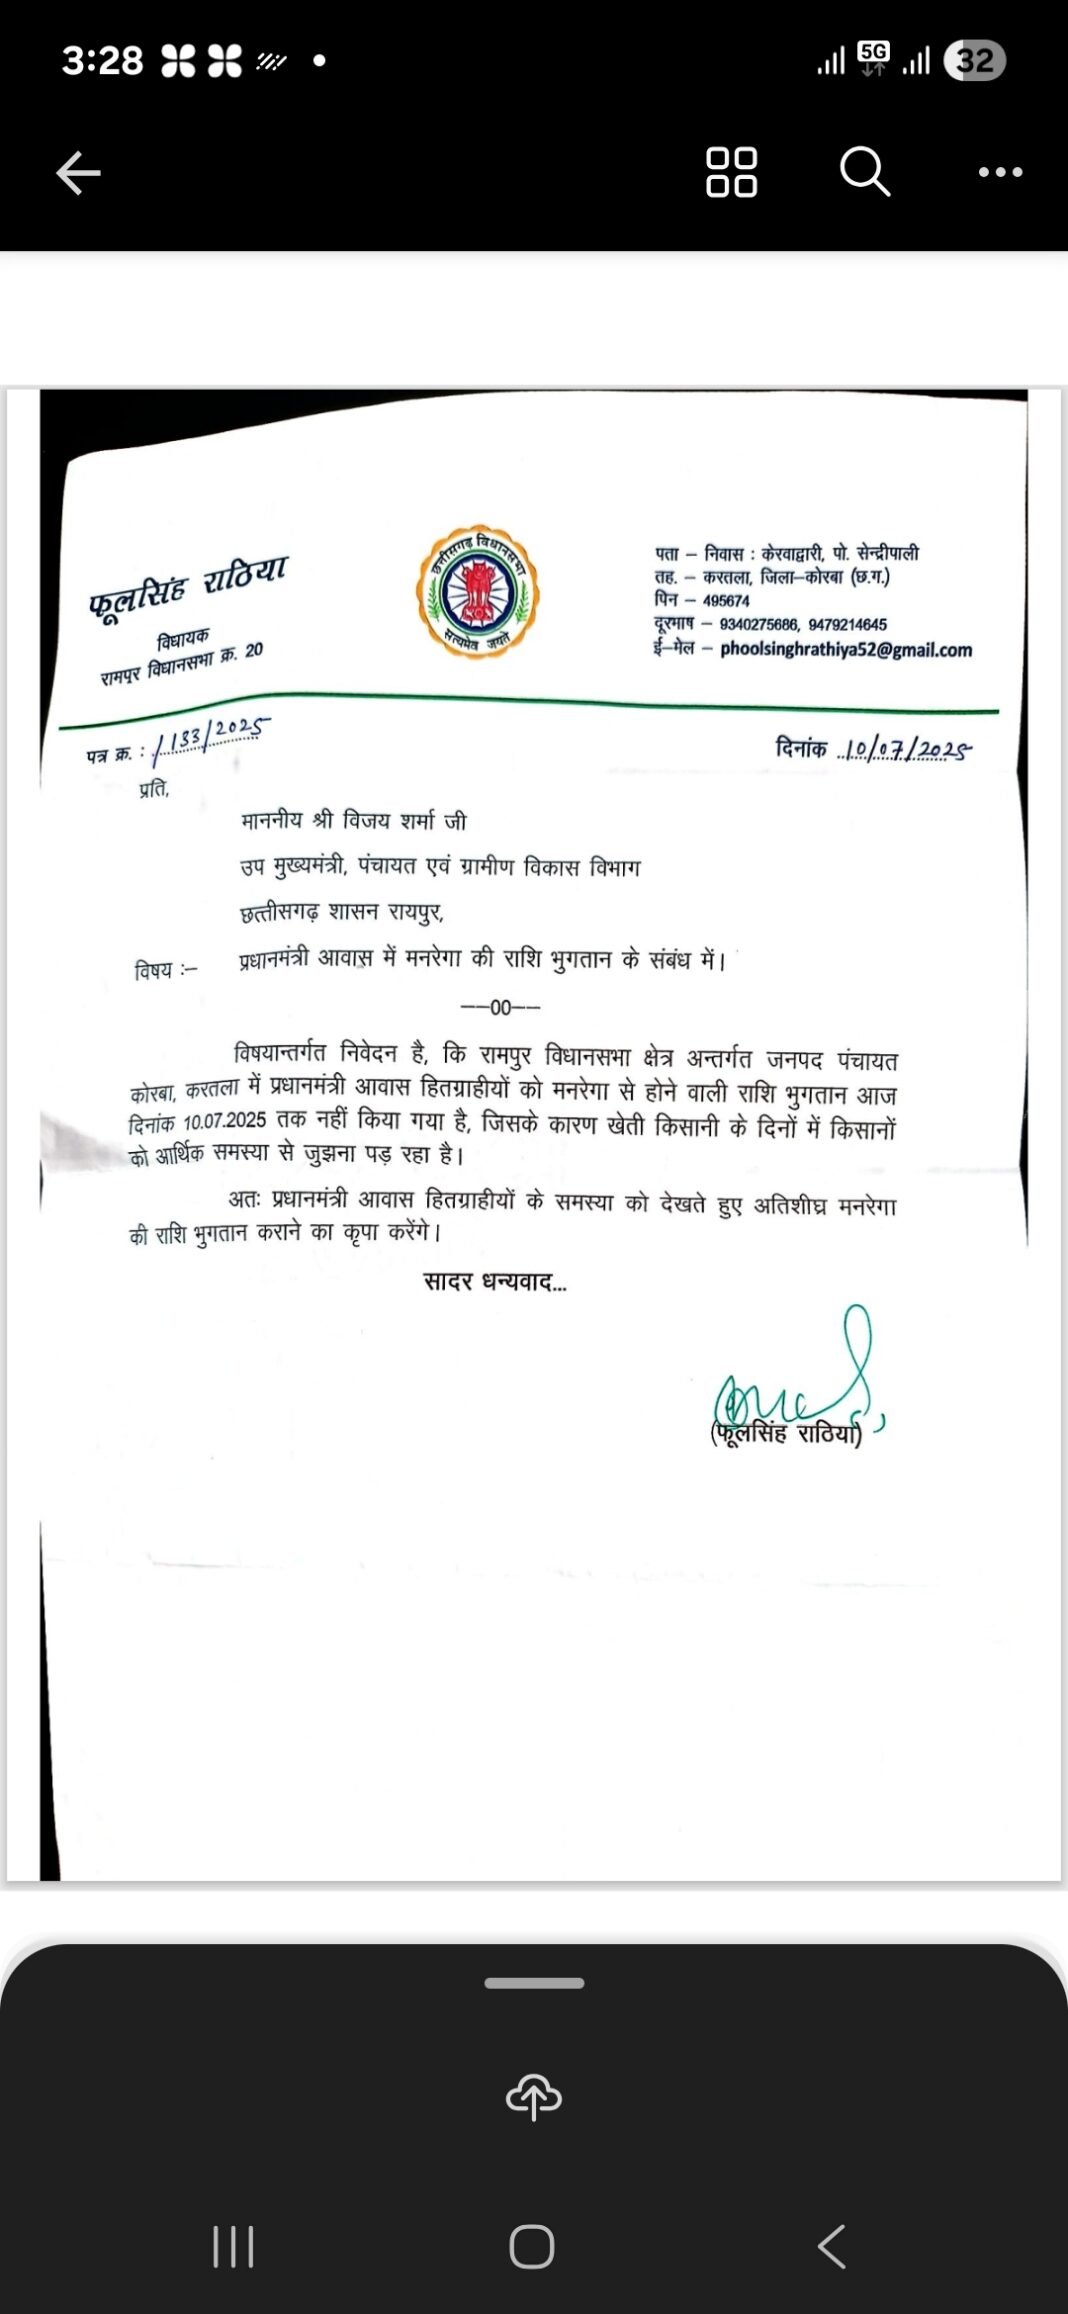 3:28
5G
32
फूलसिंह राठिया
विधायक
रामपुर विधानसभा क्र. 20
छत्तीसगढ़ विधानसभा
सत्यमेव जयते
पता – निवास : केरवाद्वारी, पो. सेन्द्रीपाली
तह. – करतला, जिला–कोरबा (छ.ग.)
पिन – 495674
दूरभाष – 9340275686, 9479214645
ई–मेल – phoolsinghrathiya52@gmail.com
पत्र क्र. : /133/2025
दिनांक 10/07/2025
प्रति,
माननीय श्री विजय शर्मा जी
उप मुख्यमंत्री, पंचायत एवं ग्रामीण विकास विभाग
छत्तीसगढ़ शासन रायपुर,
विषय :– प्रधानमंत्री आवास में मनरेगा की राशि भुगतान के संबंध में।
––00––
विषयान्तर्गत निवेदन है, कि रामपुर विधानसभा क्षेत्र अन्तर्गत जनपद पंचायत
कोरबा, करतला में प्रधानमंत्री आवास हितग्राहीयों को मनरेगा से होने वाली राशि भुगतान आज
दिनांक 10.07.2025 तक नहीं किया गया है, जिसके कारण खेती किसानी के दिनों में किसानों
को आर्थिक समस्या से जुझना पड़ रहा है।
अतः प्रधानमंत्री आवास हितग्राहीयों के समस्या को देखते हुए अतिशीघ्र मनरेगा
की राशि भुगतान कराने का कृपा करेंगे।
सादर धन्यवाद...
(फूलसिंह राठिया)